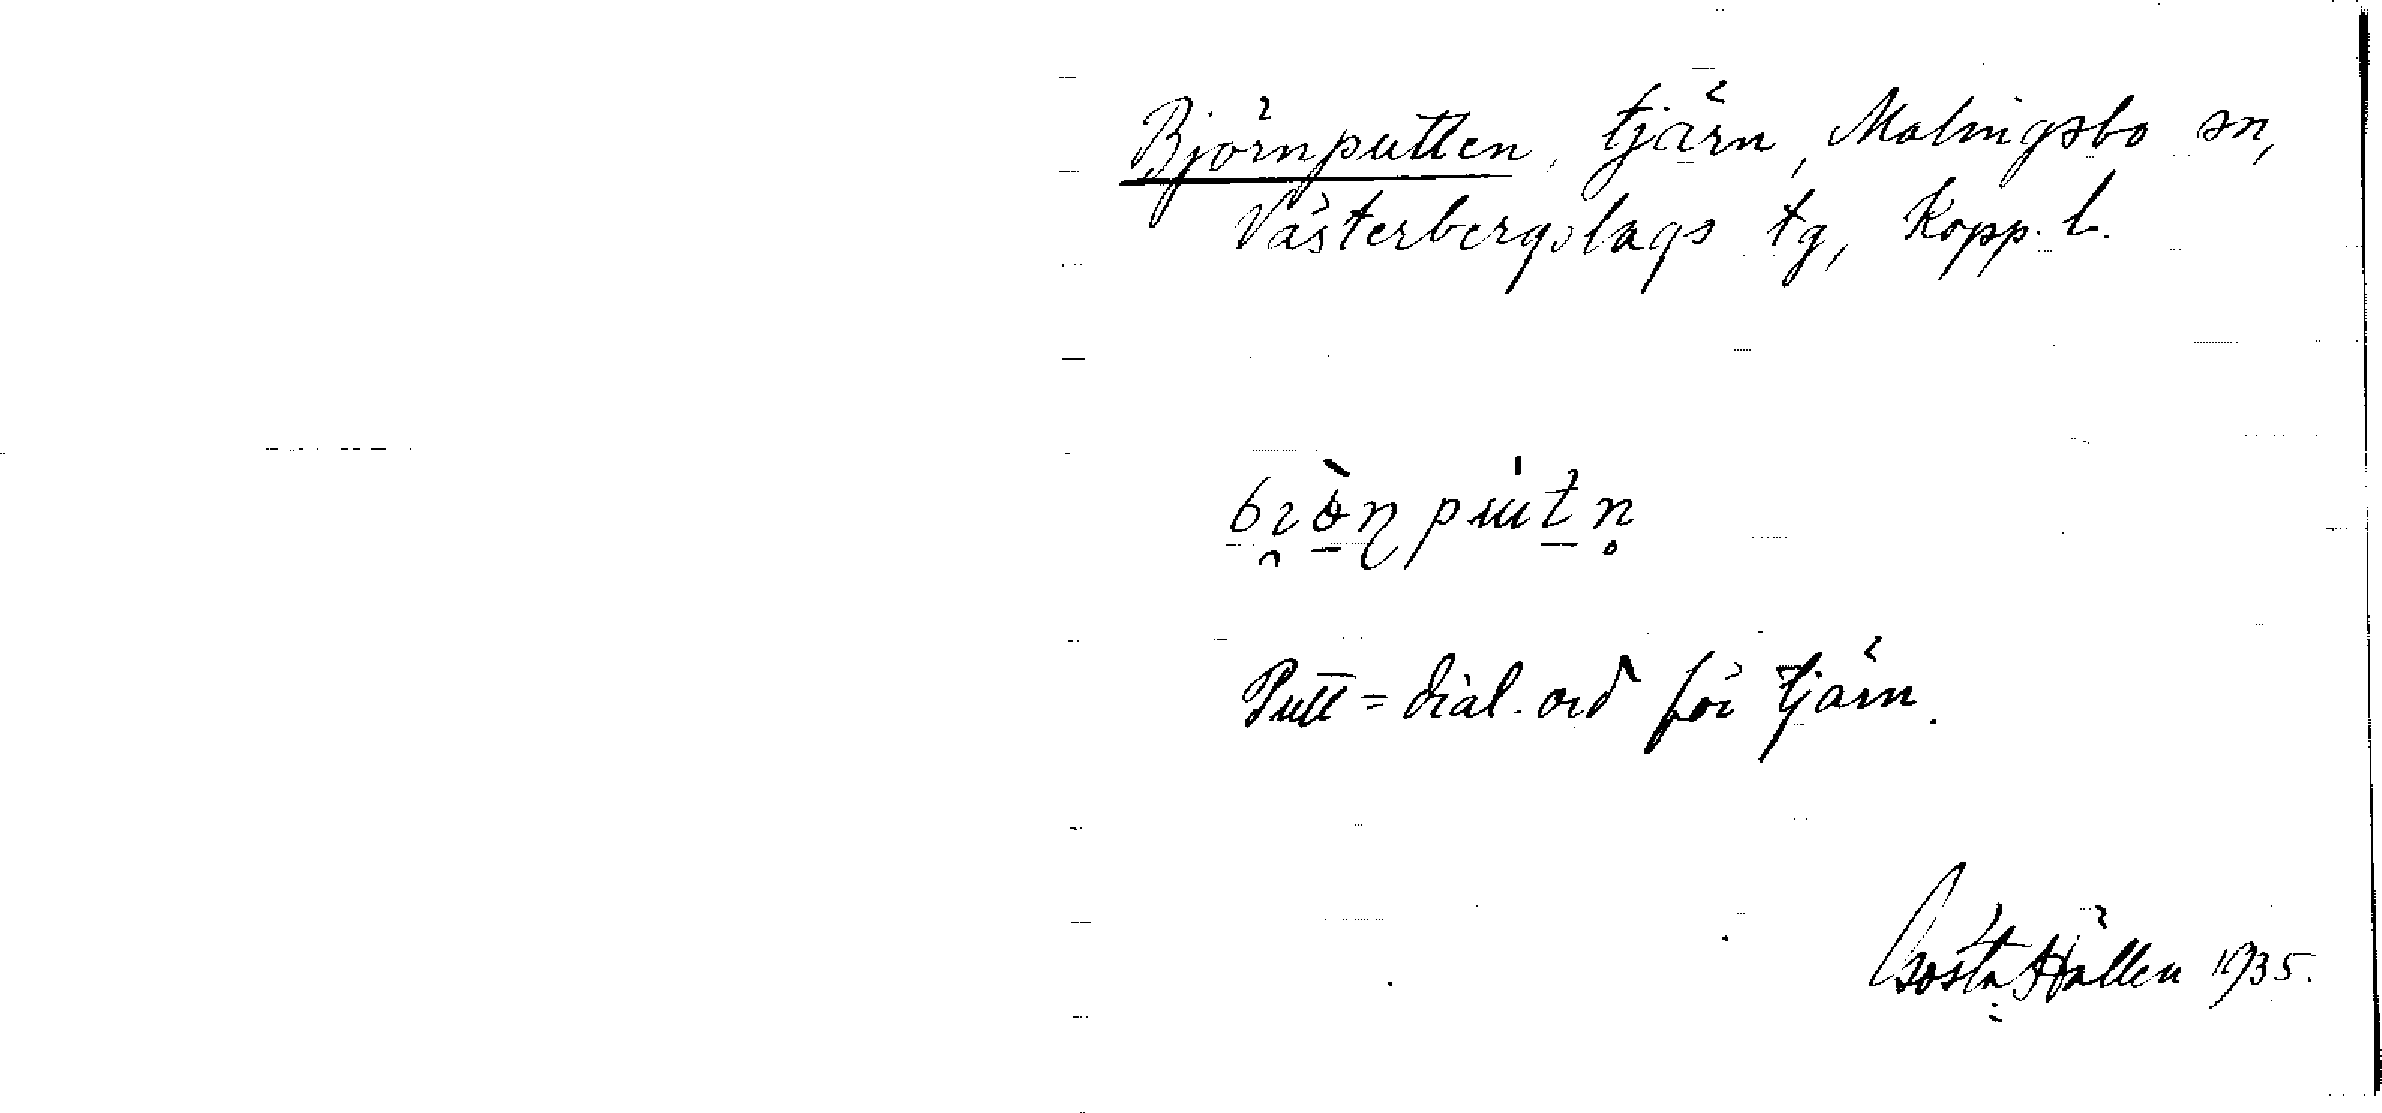 Björnputten, tjärn, Malingsbo sn,
Västerbergslags tg, Kopp. l.
Putt = dial. ord för tjärn.
Gösta Hällen 1935.